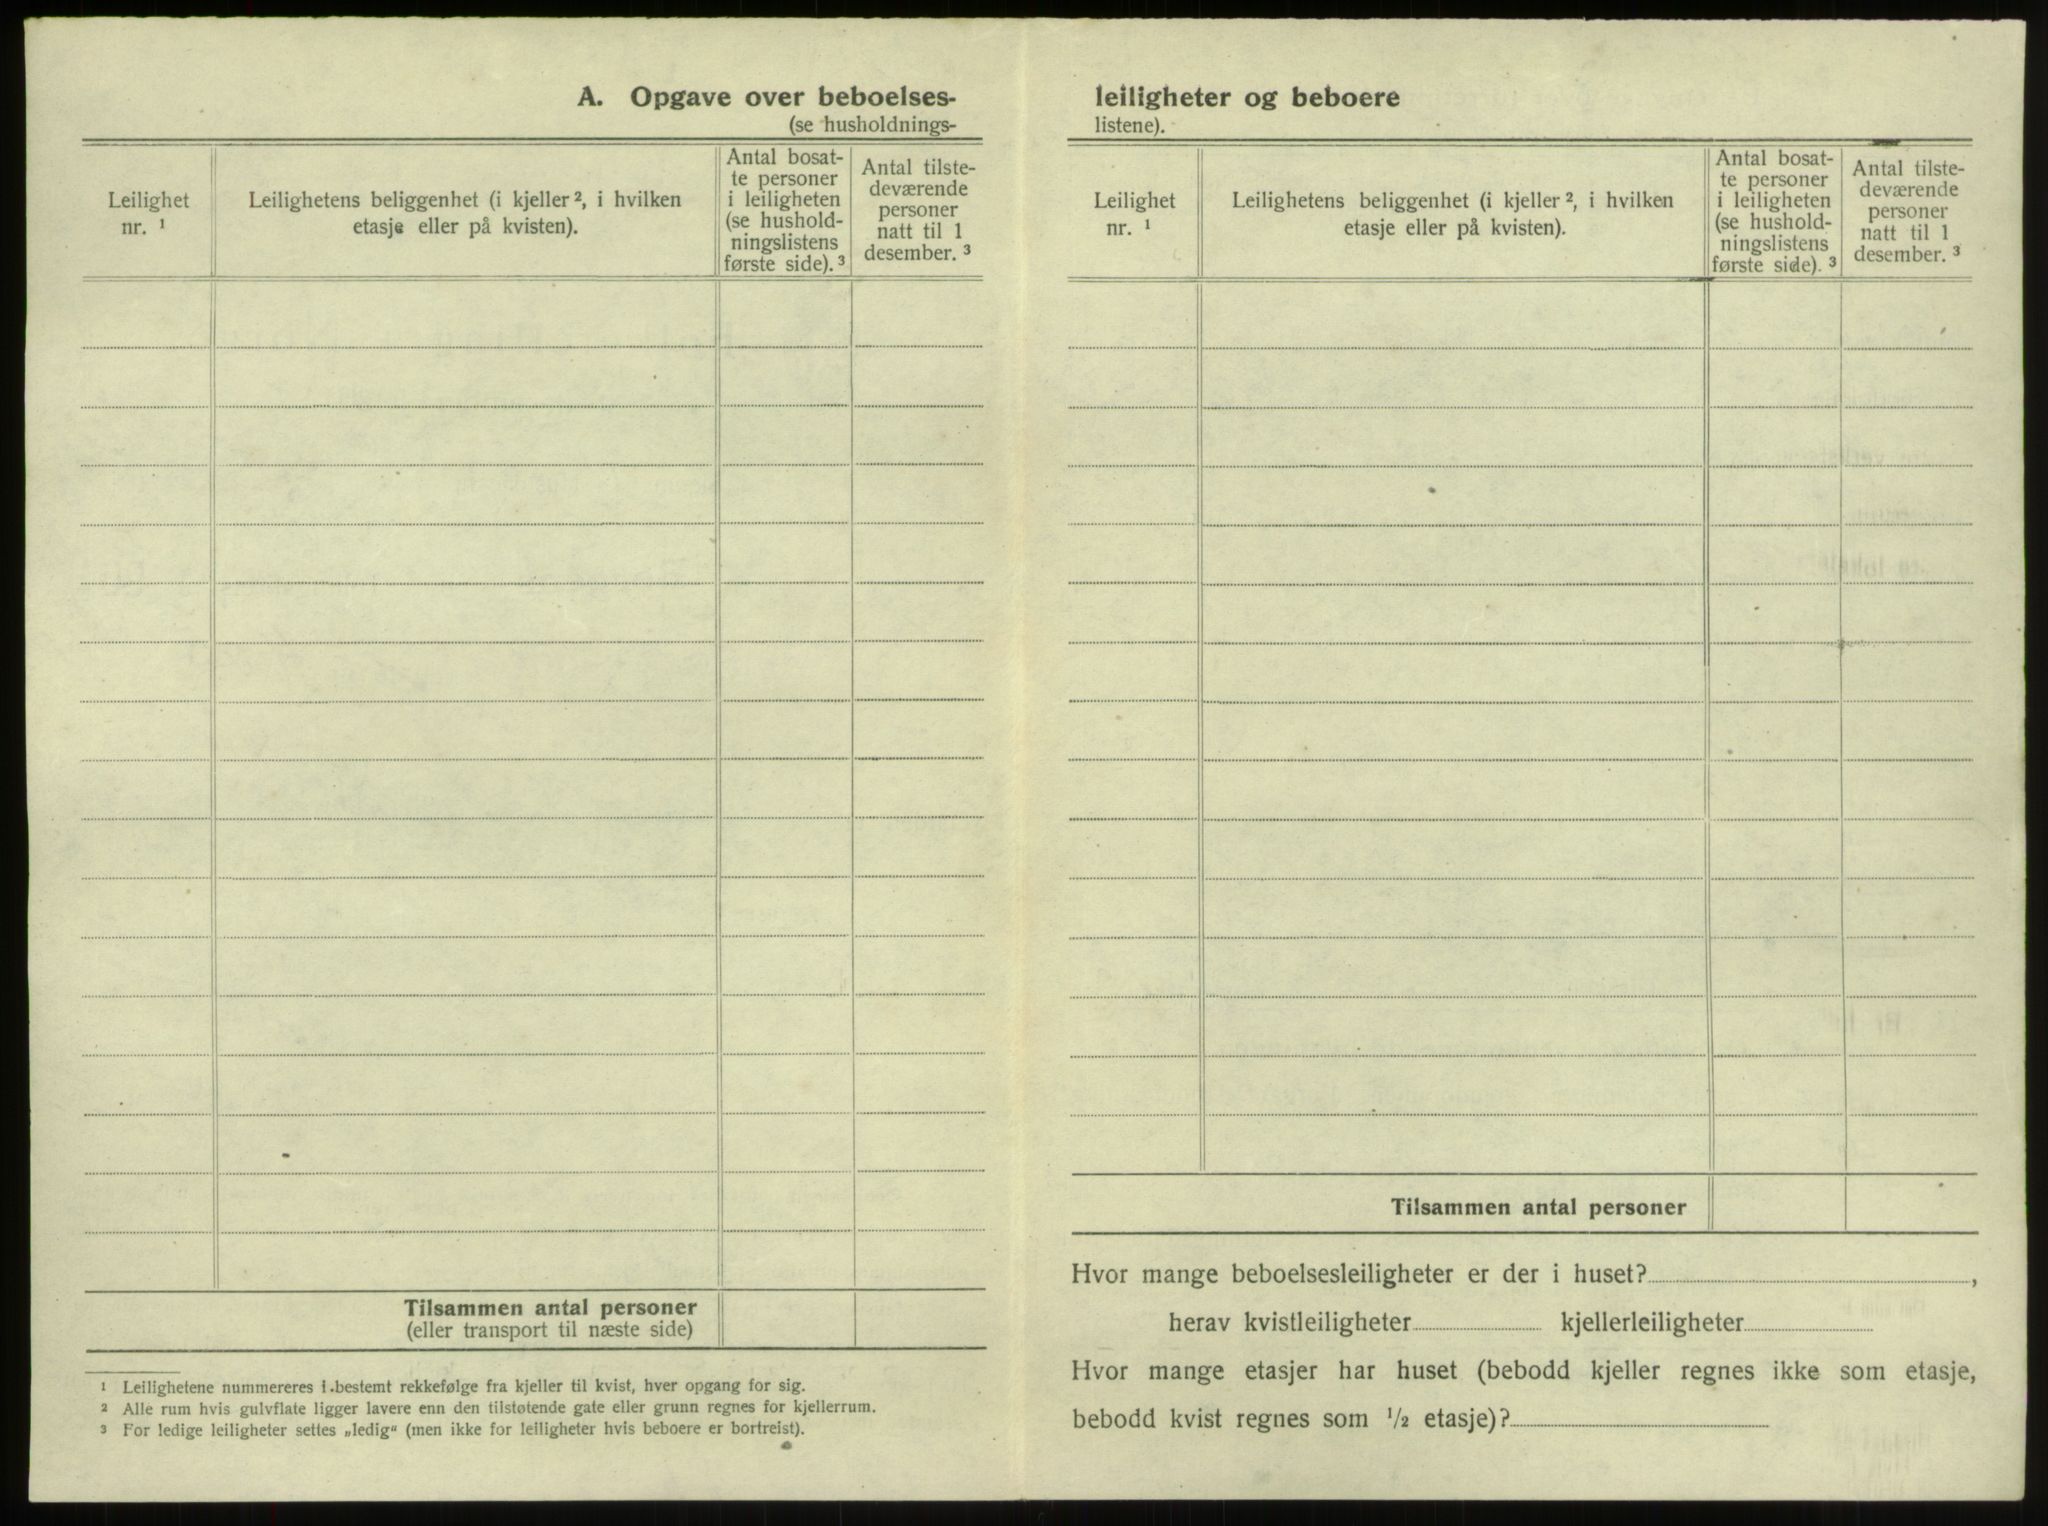 A. Opgave over beboelses-
(se husholdnings-
Leilighet
nr. ¹
Leilighetens beliggenhet (i kjeller ², i hvilken
etasje eller på kvisten).
Antal bosat-
te personer
i leiligheten
(se hushold-
ningslistens
første side). ³
Antal tilste-
deværende
personer
natt til 1
desember. ³
Tilsammen antal personer
(eller transport til næste side)
¹ Leilighetene nummereres i bestemt rekkefølge fra kjeller til kvist, hver opgang for sig.
² Alle rum hvis gulvflate ligger lavere enn den tilstøtende gate eller grunn regnes for kjellerrum.
³ For ledige leiligheter settes „ledig“ (men ikke for leiligheter hvis beboere er bortreist).
leiligheter og beboere
listene).
Leilighet
nr. ¹
Leilighetens beliggenhet (i kjeller ², i hvilken
etasje eller på kvisten).
Antal bosat-
te personer
i leiligheten
(se hushold-
ningslistens
første side). ³
Antal tilste-
deværende
personer
natt til 1
desember. ³
Tilsammen antal personer
Hvor mange beboelsesleiligheter er der i huset? ,
herav kvistleiligheter kjellerleiligheter
Hvor mange etasjer har huset (bebodd kjeller regnes ikke som etasje,
bebodd kvist regnes som ½ etasje)?